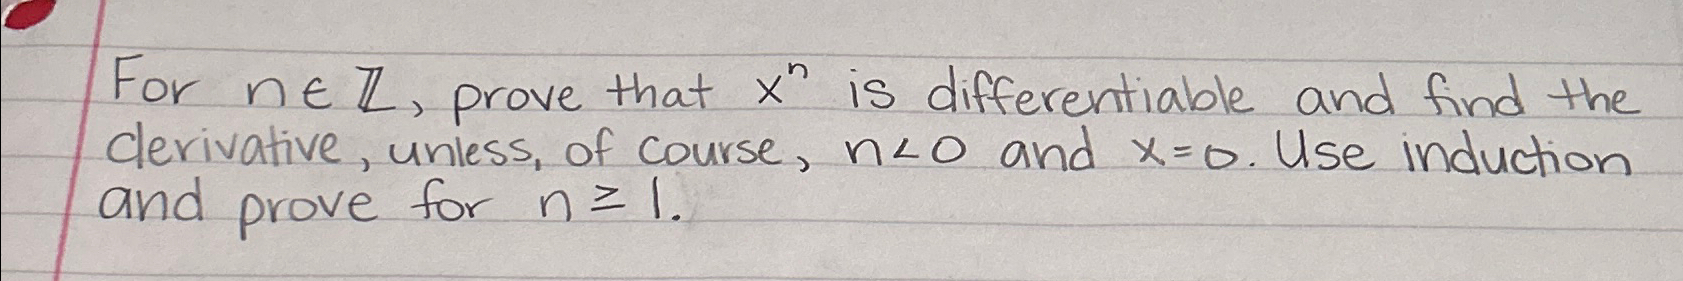 For n ∈ ℤ, prove that xⁿ is differentiable and find the
derivative, unless, of course, n<0 and x=0. Use induction
and prove for n ≥ 1.